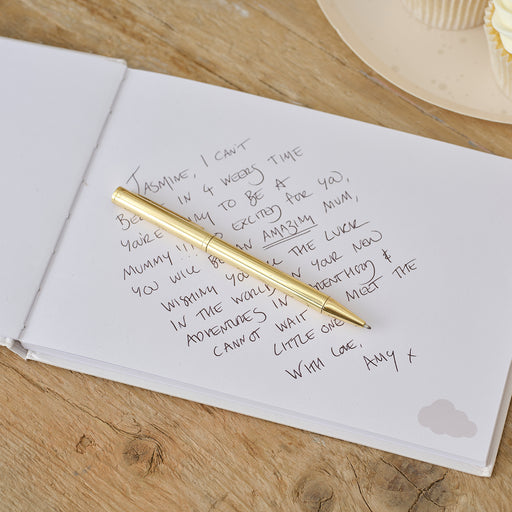 JASMINE, I CAN'T
IN 4 WEEKS TIME
YOU'RE TO BE A
MUMMY!! SO EXCITED FOR YOU,
YOU WILL BE AN AMAZING MUM,
WISHING YOU THE LUCK
IN THE WORLD IN YOUR NEW
ADVENTURES IN PARENTHOOD &
CANNOT WAIT MEET THE
LITTLE ONE
WITH LOVE, AMY X